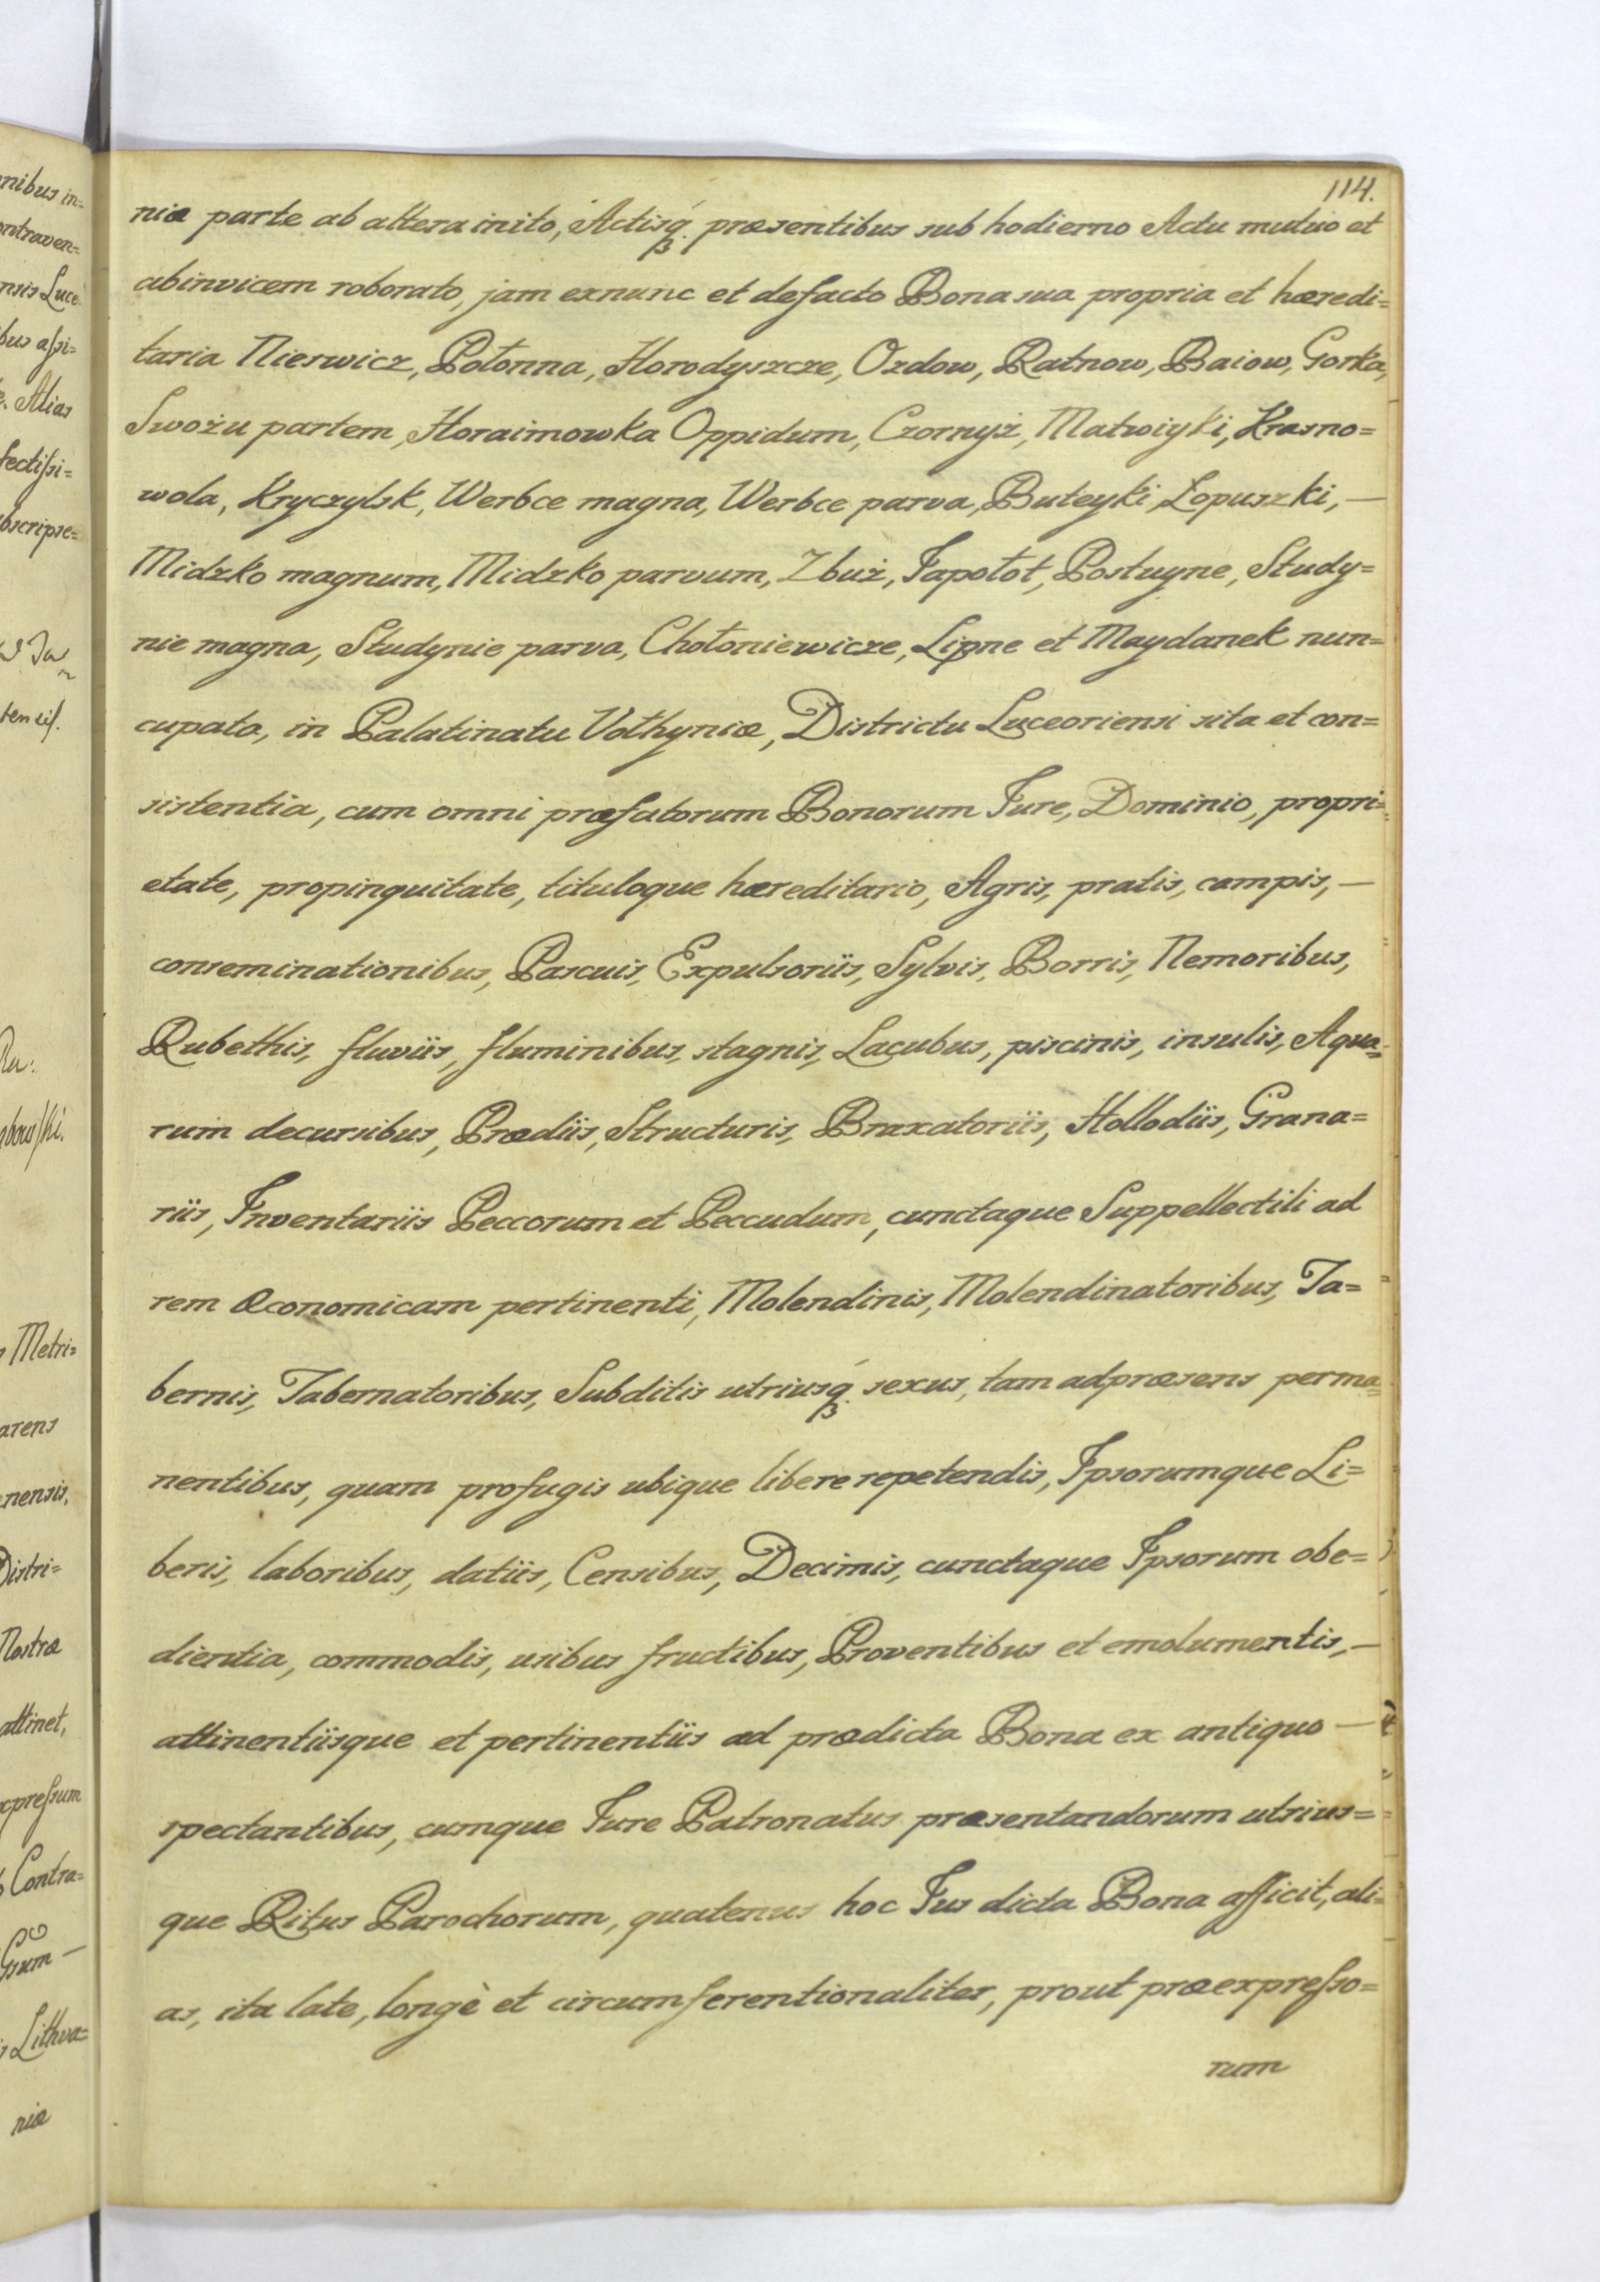 114.
niæ parte ab altera inito, Actisq́ præsentibus sub hodierno Actu mutuo et
abinvicem roborato, jam exnunc et defacto Bona sua propria et hæredi=
taria Nieswicz, Połonna, Horodyszcze, Ozdow, Ratnow, Baiow, Gorka,
Swożu partem, Horaimowka Oppidum, Czornyż, Matwiyki, Krasno=
wola, Kryczylsk, Werbce magna, Werbce parva, Buteyki, Łopuszki, —
Midzko magnum, Midzko parvum, Zbuż, Japołot, Postuyne, Study=
nie magna, Studynie parva, Chołoniewicze, Lipne et Maydanek nun=
cupata, in Palatinatu Volhyniæ, Districtu Luceoriensi sita et con=
sistentia, cum omni præfatorum Bonorum Jure, Dominio, propri=
etate, propinquitate, tituloque hæreditario, Agris, pratis, campis, —
conseminationibus, Pascuis, Expulsoriis, Sylvis, Borris, Nemoribus,
Rubethis, fluviis, fluminibus, stagnis, Lacubus, piscinis, insulis, Aqua=
rum decursibus, Prædiis, Structuris, Braxatoriis, Hollodiis, Grana=
riis, Inventariis Peccorum et Peccudum, cunctaque Suppellectili ad
rem œconomicam pertinenti, Molendinis, Molendinatoribus, Ta=
bernis, Tabernatoribus, Subditis utriusq́ sexus, tam adpræsens perma=
nentibus, quam profugis ubique libere repetendis, Ipsorumque Li=
beris, laboribus, datiis, Censibus, Decimis, cunctaque Ipsorum obe=
dientia, commodis, usibus fructibus, Proventibus et emolumentis, —
attinentiisque et pertinentiis ad prædicta Bona ex antiquo —
spectantibus, cumque Jure Patronatus præsentandorum utrius=
que Ritus Parochorum, quatenus hoc Jus dicta Bona afficit, ali=
as, ita late, longè et circumferentionaliter, prout præexpresso=
rum
nibus in=
ontraven=
nsis Luce
bus assi=
Alias
fectissi=
bscripse=
Metri=
arens
nensis,
Distri=
Nostræ
attinet,
xpressum
Contra=
Lithva=
niæ